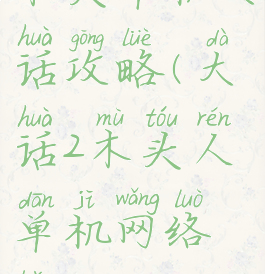 huà gōng lüè dà
话攻略(大
huà mù tóu rén
话2木头人
dān jī wǎng luò
单机网络